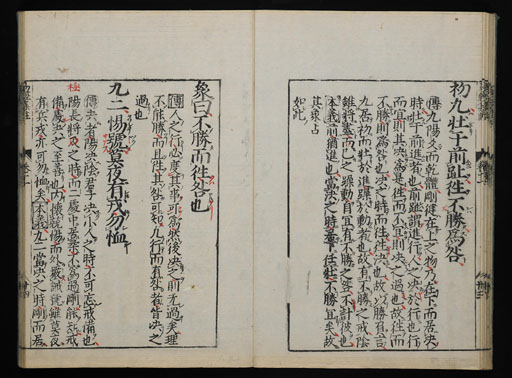 初九壯于前趾徃不勝爲咎
傳九陽爻而乾體剛健在上之物乃在下而居决
時壯于前進者也前趾謂進行人之决於行也行
而宜則其决爲是徃而不宜則决之過也故徃而
不勝則爲咎也夬之時而徃徃决也故以勝負言
九居初而壯於進躁於動者也故有不勝之戒陰
雖將盡而己之躁動自宜有不勝之咎不計彼也
本義前猶進也當决之時居下任壯不勝宜矣故
其象占
如此
象曰不勝而徃咎也
傳人之行必度其事可爲然後决之則无過矣理
不能勝而且徃其咎可知凡行而有咎者皆决之
過也
九二惕號莫夜有戎勿恤
傳夬者陽决陰君子决小人之時不可忘戒備也
陽長將極之時而二處中居柔不爲過剛能知戒
備處夬之至善也内懷兢惕而外嚴誡號雖莫夜
有兵戎亦可勿恤矣本義九二當决之時剛而居
極